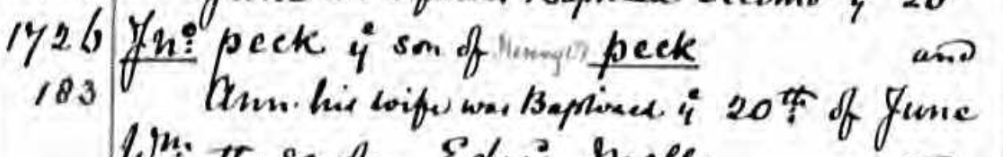 1726 Jno. peck ye son of peck and
183 Ann his wife was Baptized ye 20th of June